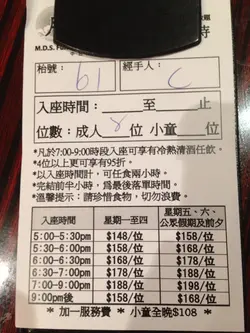 M.D.S. Fu
時
枱號： 61 經手人： C
入座時間： 至 止
位數：成人 8 位 小童 位
*凡於7:00-9:00時段入座可享有冷熱清酒任飲。
*4位以上更可享有95折。
*以入座時間計，可任食兩小時。
*完結前半小時，為最後落單時間。
*溫馨提示：請珍惜食物，切勿浪費。
入座時間 星期一至四 星期五、六、公眾假期及前夕
5:00-5:30pm $148/位 $158/位
5:30-6:00pm $158/位 $168/位
6:00-6:30pm $168/位 $178/位
6:30-7:00pm $178/位 $188/位
7:00-9:00pm $188/位 $198/位
9:00pm後 $158/位 $168/位
* 加一服務費 * 小童全晚$108 *